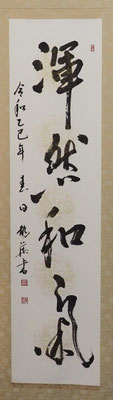 渾然和氣
令和乙巳年 春日 龍峰書